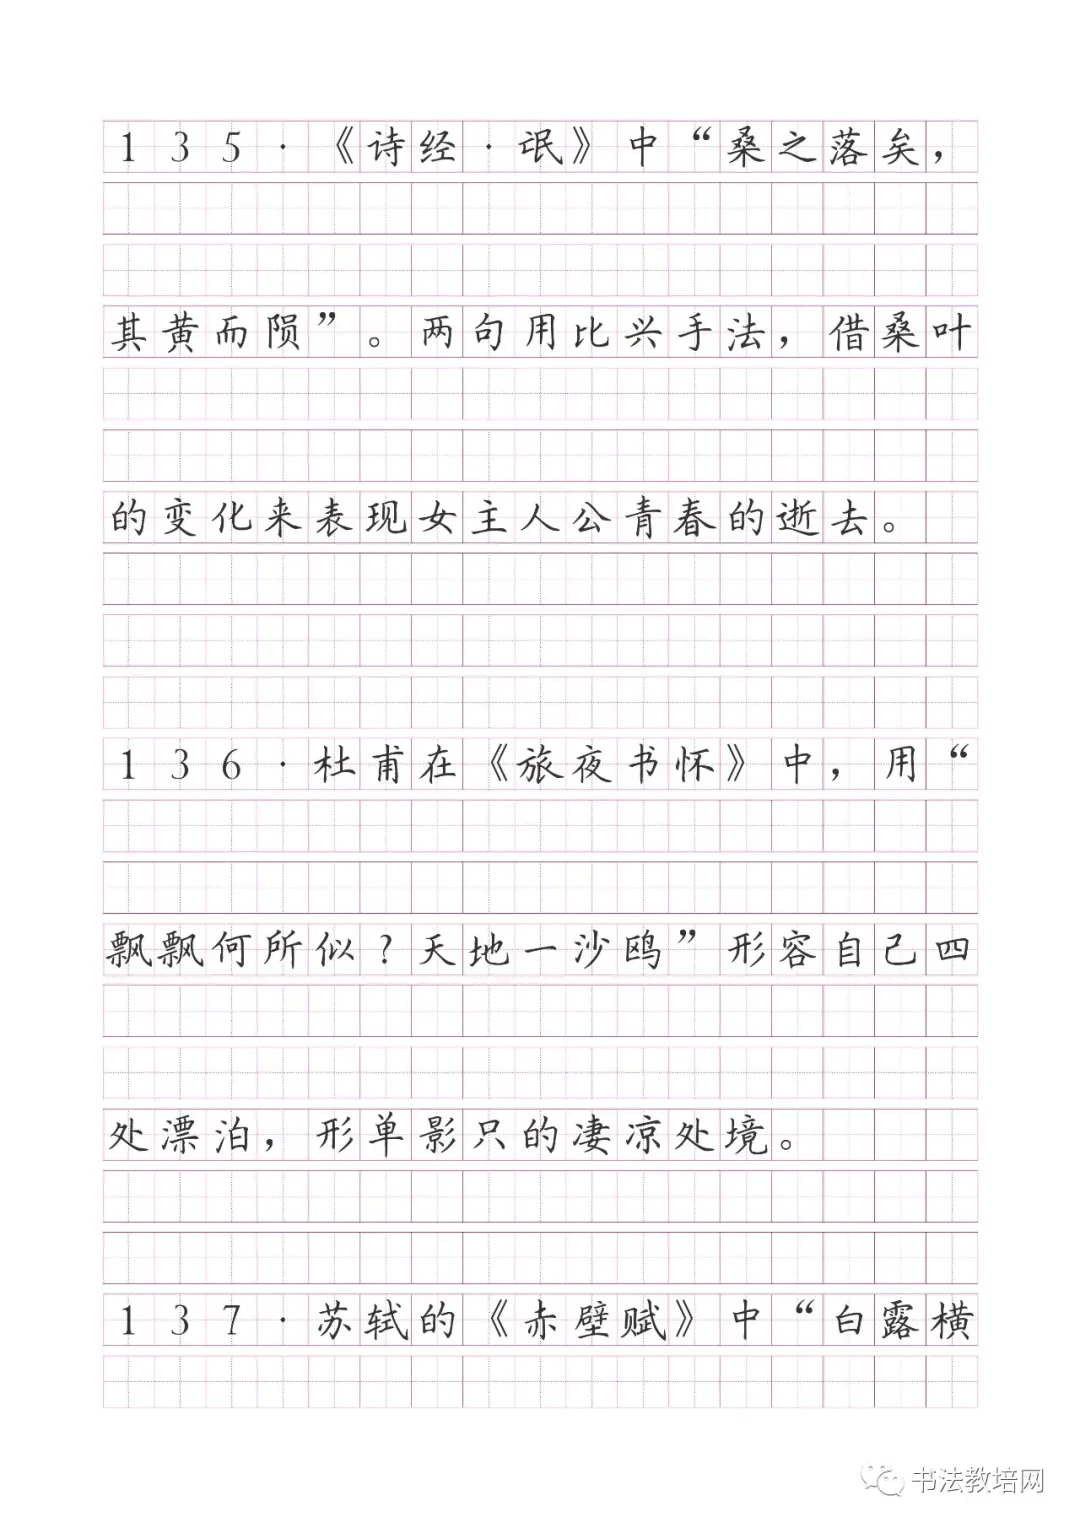 135·《诗经·氓》中“桑之落矣，
其黄而陨”。两句用比兴手法，借桑叶
的变化来表现女主人公青春的逝去。
136·杜甫在《旅夜书怀》中，用“
飘飘何所似？天地一沙鸥”形容自己四
处漂泊，形单影只的凄凉处境。
137·苏轼的《赤壁赋》中“白露横
书法教培网